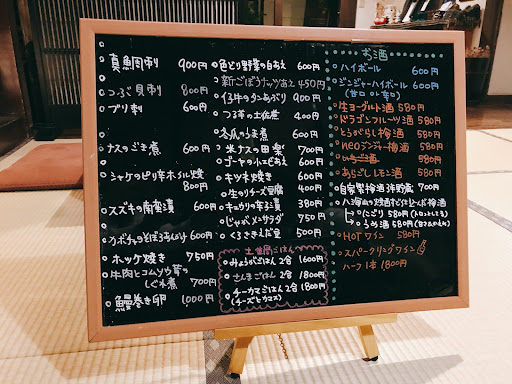 真鯛刺 900円
つぶ貝刺 800円
ブリ刺 600円
ナスのごま煮 600円
シャケのピリ辛ホイル焼 800円
スズキの南蛮漬 600円
カボチャのそぼろあんかけ 600円
ホッケ焼き 750円
牛肉とコムソウ茸の
しぐれ煮 700円
鰻巻き卵 1,000円
色どり野菜の白あえ 600円
新ごぼうナッツあえ 450円
仔牛のタンあぶり 900円
つる芋の土佐煮 400円
冬瓜のうま煮 600円
米ナスの田楽 700円
ゴーヤの小こぶあえ 600円
キツネ焼き 600円
生のりチーズ豆腐 400円
キュウリの辛子漬 380円
じゃがメンサラダ 750円
くるみきんだ豆 500円
土鍋ごはん
みょうがごはん 2合 1600円
さんまごはん 2合 1800円
チーカマごはん 2合 1800円
(チーズとカマス)
お酒
ハイボール 600円
ジンジャーハイボール
(甘口 or 辛口) 600円
生ヨーグルト酒 580円
ドラゴンフルーツ酒 580円
とうがらし梅酒 580円
neoジンジャー梅酒 580円
いちご酒 580円
あらごしレモン酒 580円
自家製梅酒 700円
八海山の焼酎で仕込んだ梅酒
にごり 580円
うめ酒 580円
HOTワイン 580円
スパークリングワイン
ハーフ 1本 1800円